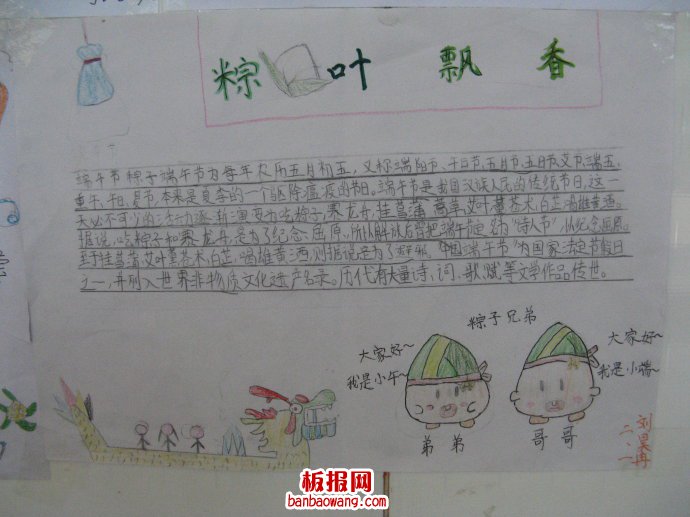 粽叶飘香
端午节 粽子 端午节为每年农历五月初五，又称端阳节、午日节、五月节、五日节、艾节、端五、
重午、午日、夏节，本来是夏季的一个驱除瘟疫的节日。端午节是我国汉族人民的传统节日，这一
天必不可少的活动逐渐演变为吃粽子，赛龙舟，挂菖蒲、蒿草、艾叶，薰苍术、白芷，喝雄黄酒。
据说，吃粽子和赛龙舟，是为了纪念屈原，所以解放后曾把端午节定名为“诗人节”，以纪念屈原。
至于挂菖蒲、艾叶，薰苍术、白芷，喝雄黄酒，则据说是为了辟邪。“中国端午节”为国家法定节假日
之一，并列入世界非物质文化遗产名录。历代有大量诗、词、歌、赋等文学作品传世。
粽子兄弟
大家好~
我是小午~
大家好~
我是小端~
弟弟
哥哥
二.一
板报网
banbaowang.com